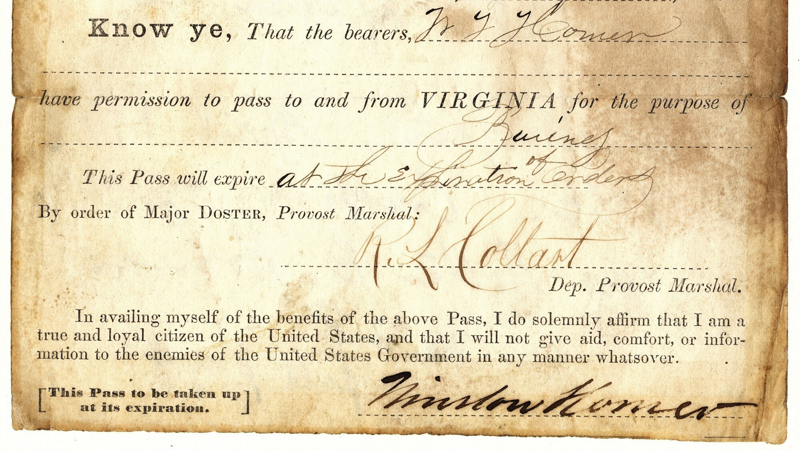 Know ye, That the bearers, W F Homer
have permission to pass to and from VIRGINIA for the purpose of
Buines
This Pass will expire at the Expiration of orders
By order of Major DOSTER, Provost Marshal:
R. L Collart
Dep. Provost Marshal.
In availing myself of the benefits of the above Pass, I do solemnly affirm that I am a
true and loyal citizen of the United States, and that I will not give aid, comfort, or infor-
mation to the enemies of the United States Government in any manner whatsover.
[This Pass to be taken up
at its expiration.]
Winslow Homer